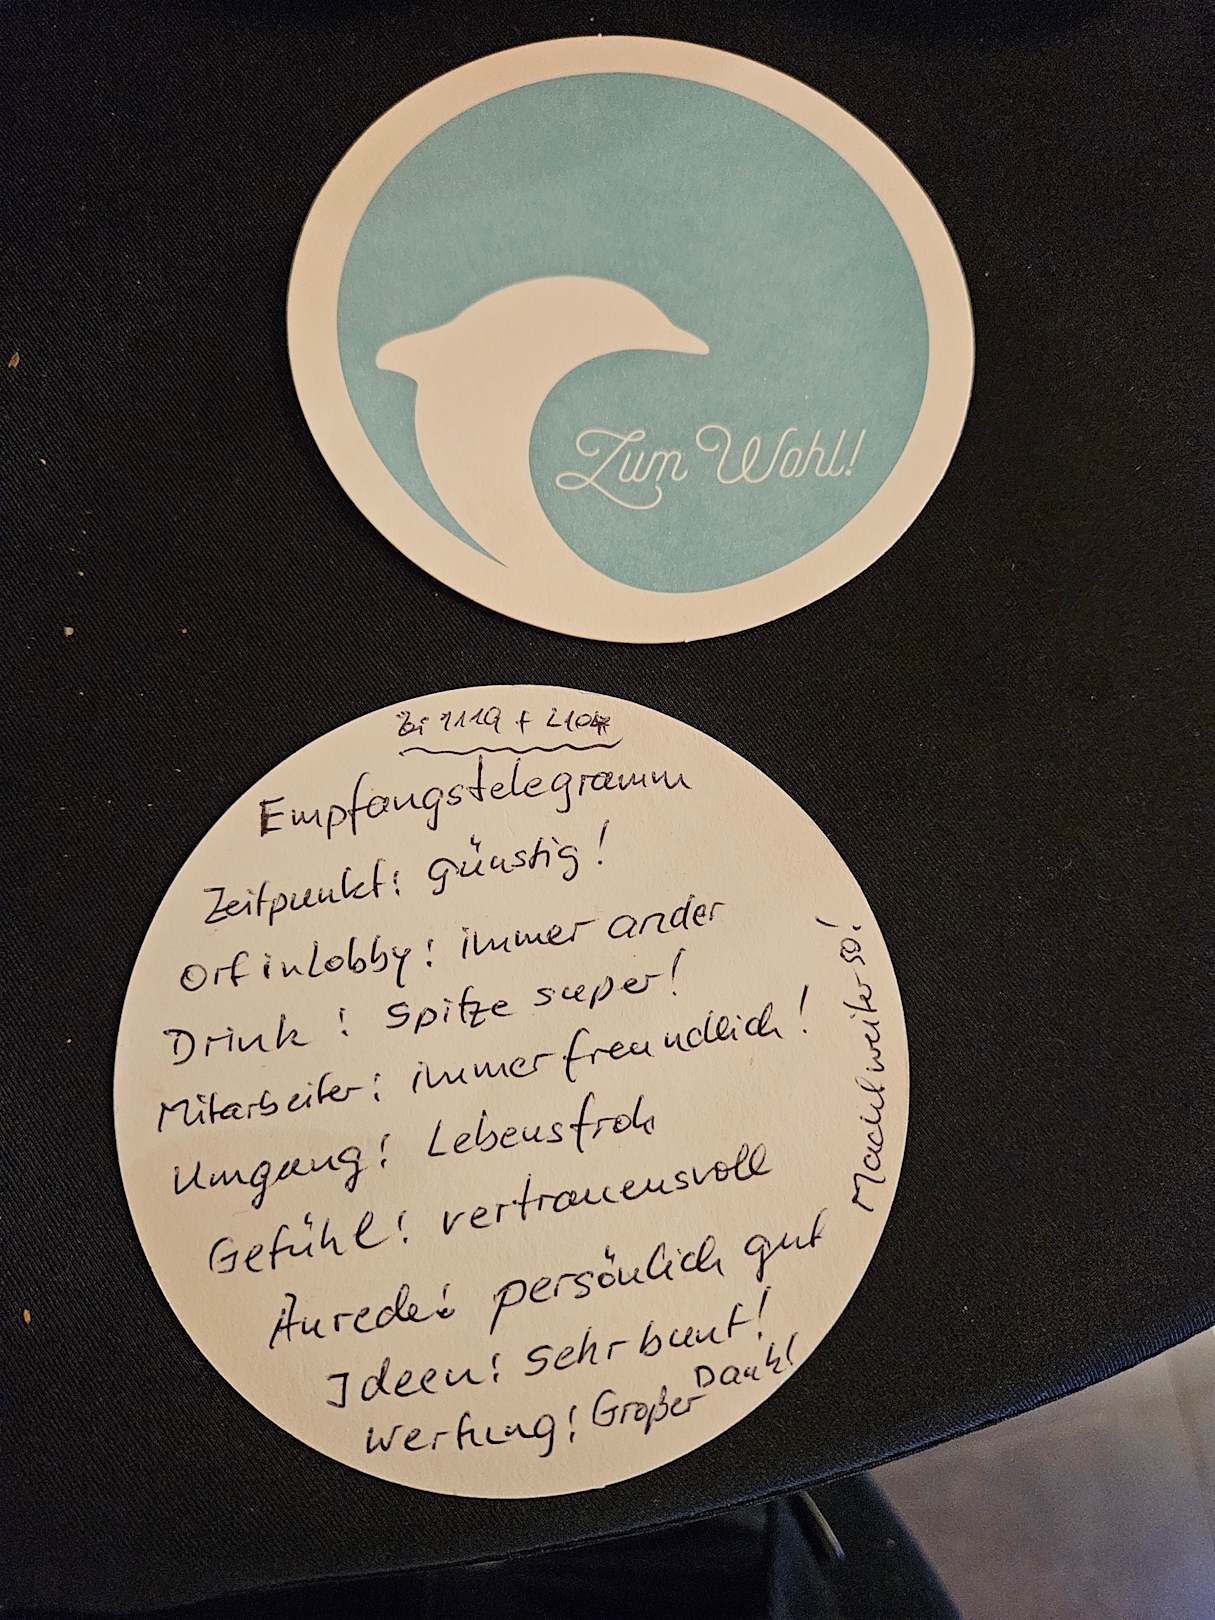 Zum Wohl!
Zi 1119 +
Empfangstelegramm
Zeitpunkt: günstig!
Ort in Lobby: immer ander
Drink: Spitze super!
Mitarbeiter: immer freundlich!
Umgang: Lebensfroh
Gefühl: vertrauensvoll
Anrede: persönlich gut
Ideen: sehr bunt!
Wertung: Großer Dank!
Macht weiter so!